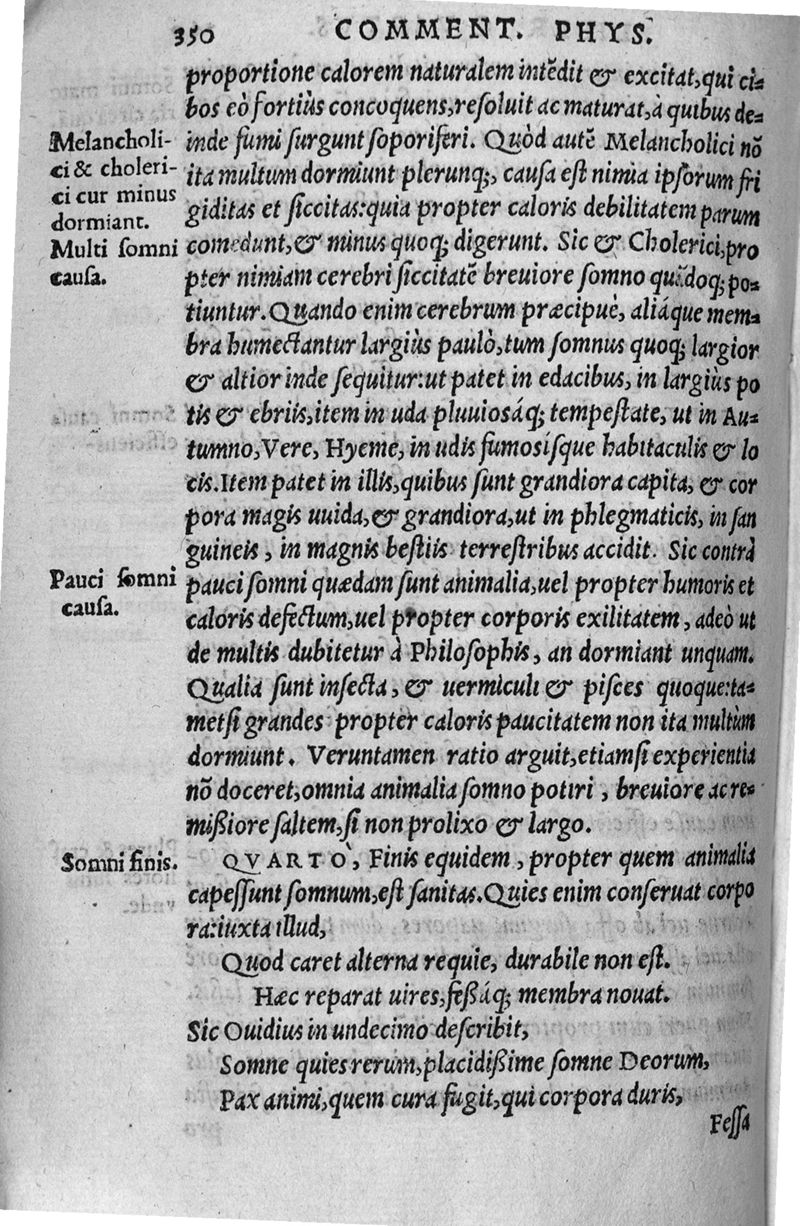 350 COMMENT. PHYS.
proportione calorem naturalem intẽdit & excitat, qui ci=
bos eò fortiùs concoquens, resoluit ac maturat, à quibus de=
inde fumi surgunt soporiferi. Quòd autẽ Melancholici nõ
ita multum dormiunt plerunq;, causa est nimia ipsorum fri
giditas et siccitas: quia propter caloris debilitatem parum
comedunt, & minus quoq; digerunt. Sic & Cholerici, pro
pter nimiam cerebri siccitatẽ breuiore somno quãdoq; po=
tiuntur. Quando enim cerebrum præcipuè, aliáque mem=
bra humectantur largiùs paulò, tum somnus quoq; largior
& altior inde sequitur: ut patet in edacibus, in largiùs po
tis & ebriis, item in uda pluuiosáq; tempestate, ut in Au=
tumno, Vere, Hyeme, in udis fumosisque habitaculis & lo
cis. Item patet in illis, quibus sunt grandiora capita, & cor
pora magis uuida, & grandiora, ut in phlegmaticis, in san
guineis, in magnis bestiis terrestribus accidit. Sic contrà
pauci somni quædam sunt animalia, uel propter humoris et
caloris defectum, uel propter corporis exilitatem, adeò ut
de multis dubitetur à Philosophis, an dormiant unquam.
Qualia sunt insecta, & uermiculi & pisces quoque: ta=
metsi grandes propter caloris paucitatem non ita multùm
dormiunt. Veruntamen ratio arguit, etiamsi experientia
nõ doceret, omnia animalia somno potiri, breuiore ac re=
mißiore saltem, si non prolixo & largo.
QVARTO, Finis equidem, propter quem animalia
capessunt somnum, est sanitas. Quies enim conseruat corpo
ra: iuxta illud,
Quod caret alterna requie, durabile non est.
Hæc reparat uires, feßáq; membra nouat.
Sic Ouidius in undecimo describit,
Somne quies rerum, placidißime somne Deorum,
Pax animi, quem cura fugit, qui corpora duris,
Fessa
Melancholi-
ci & choleri-
ci cur minus
dormiant.
Multi somni
causa.
Pauci somni
causa.
Somni finis.